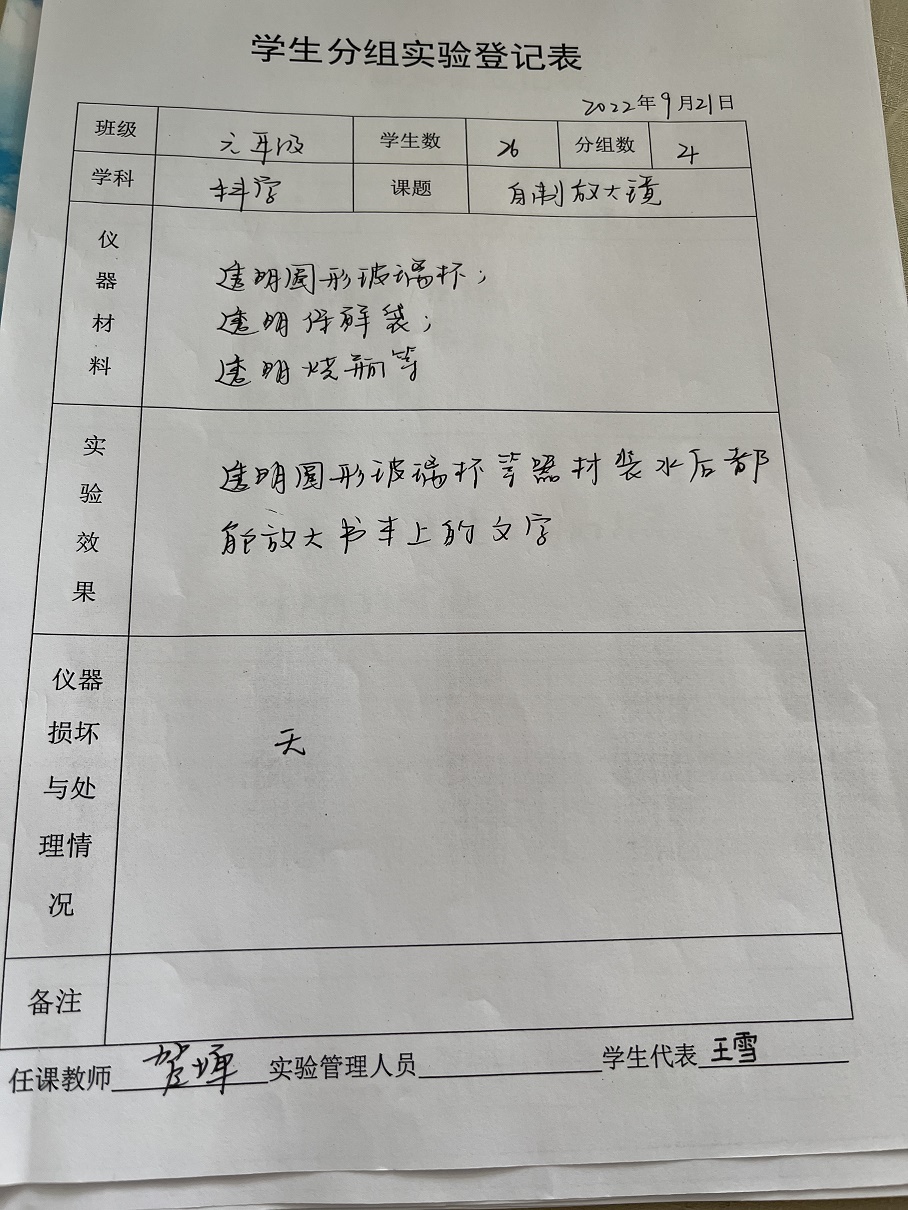 学生分组实验登记表
2022年9月21日
班级 六年级 学生数 26 分组数 4
学科 科学 课题 自制放大镜
仪器材料
透明圆形玻璃杯；
透明保鲜袋；
透明烧瓶等
实验效果
透明圆形玻璃杯等器材装水后都
能放大书本上的文字
仪器损坏与处理情况
无
备注
任课教师 贺 实验管理人员 学生代表 王雪